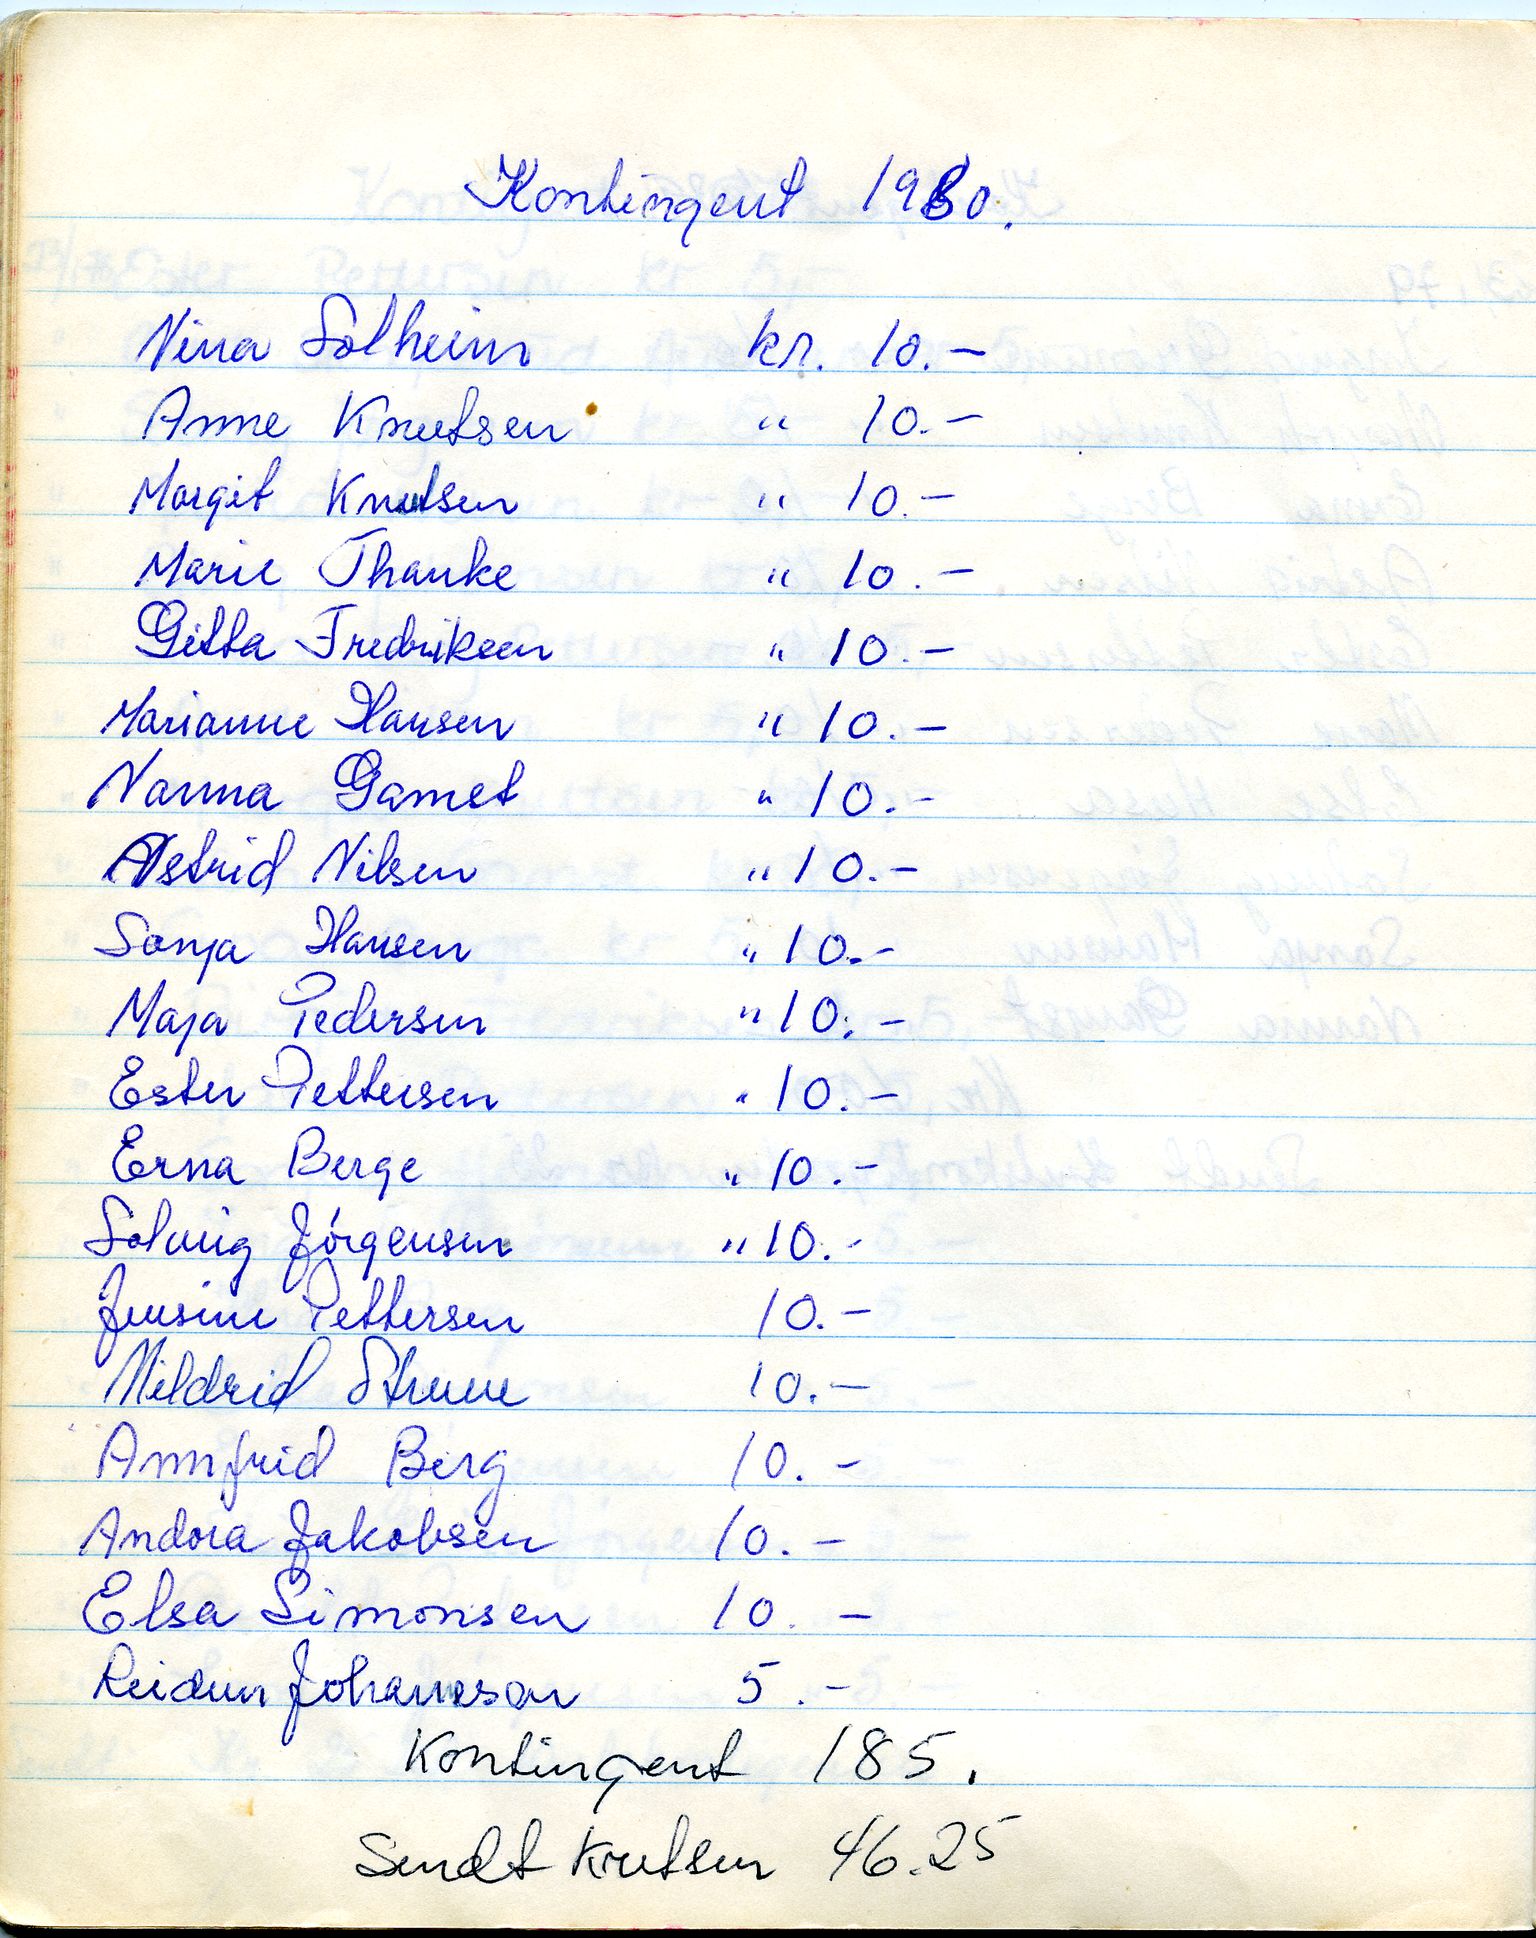 Kontingent 1980.
Nina Solheim kr. 10.-
Anne Knutsen " 10.-
Margit Knutsen " 10.-
Marie Thanke " 10.-
Gitta Fredriksen " 10.-
Marianne Hansen " 10.-
Nanna Gamst " 10.-
Astrid Nilsen " 10.-
Sonja Hansen " 10.-
Maja Pedersen " 10.-
Ester Pettersen " 10.-
Erna Berge " 10.-
Solveig Jörgensen " 10.-
Jensine Pettersen 10.-
Mildrid 10.-
Annfrid Berg 10.-
Andora Jakobsen 10.-
Elsa Simonsen 10.-
Reidun Johanneson 5.-
Kontingent 185.
Sendt 46.25